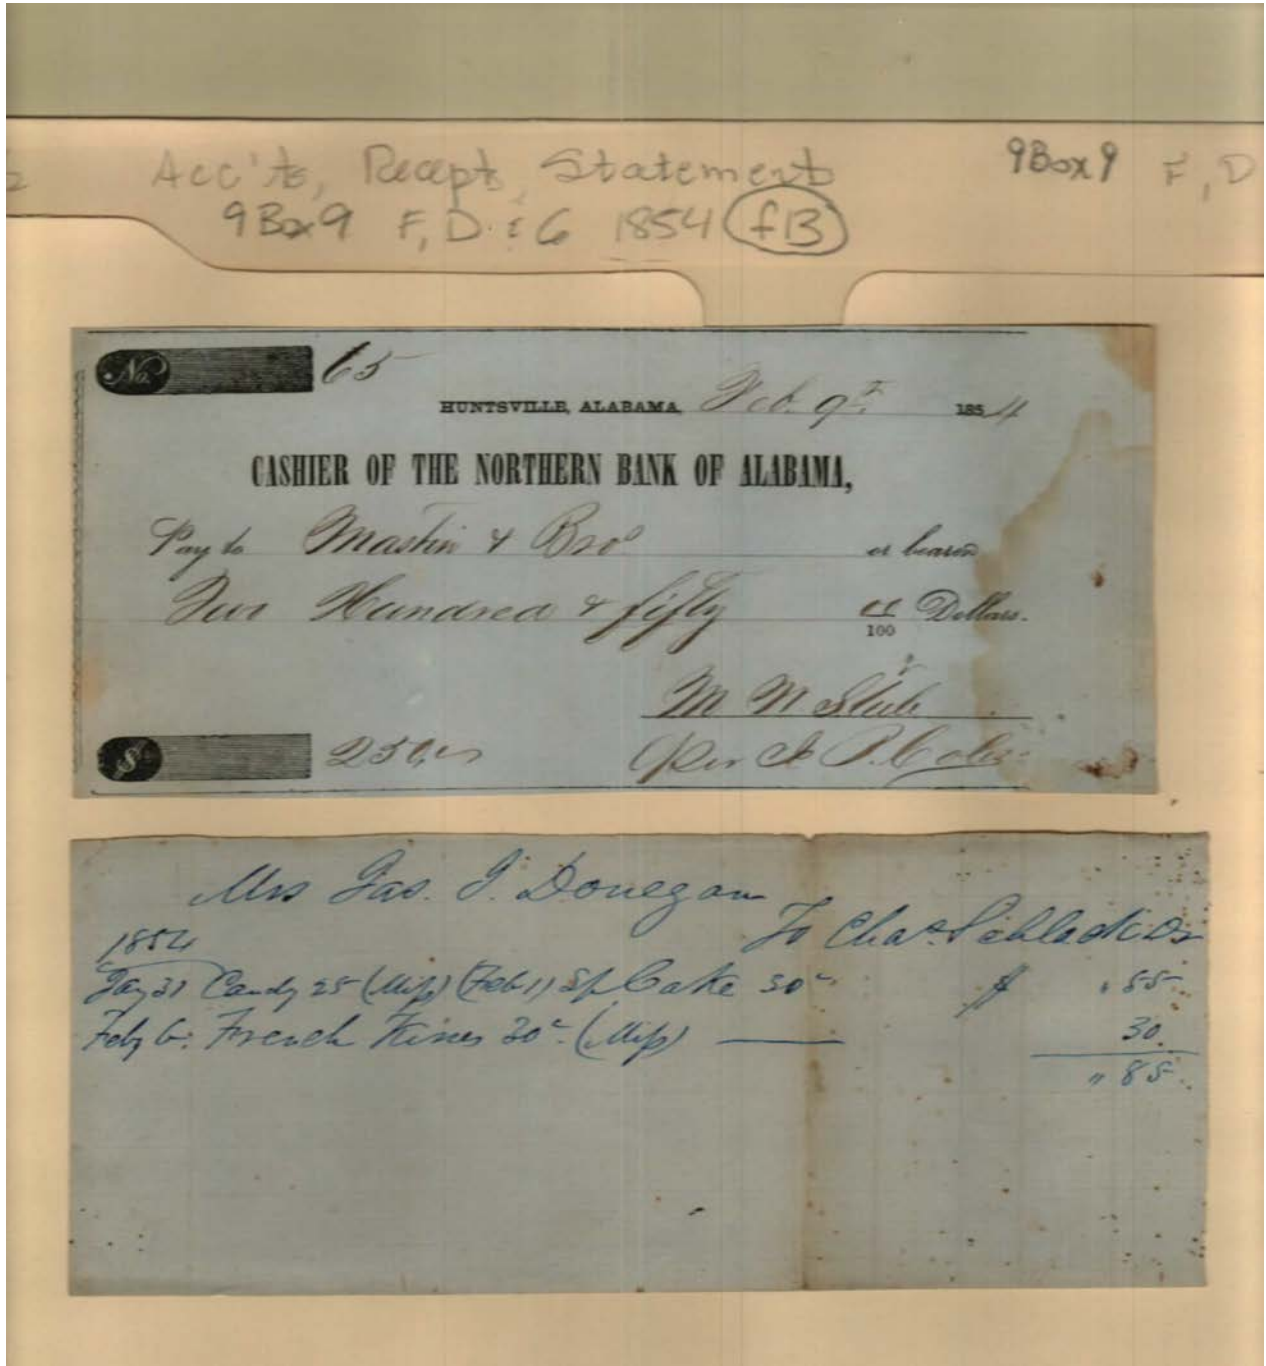 Acc'ts, Recepts, Statement
9Box9 F, D
2
9Box9 F, D & G 1854 f13
No. 65
HUNTSVILLE, ALABAMA, Feb. 9th 1854
CASHIER OF THE NORTHERN BANK OF ALABAMA,
Pay to Mastin & Bro or bearer
Two Hundred & fifty 00/100 Dollars.
M M
$ 250,00
Per P. Coles
Mrs Jas. J. Donegan
To Chas. Schlack Dr
1854
Jay 31 Candy 25 (Miss) (Feb 1) Sp Cake 30c $ "55
Feby 6. French Kisses 30c (Miss) 30.
" 85.